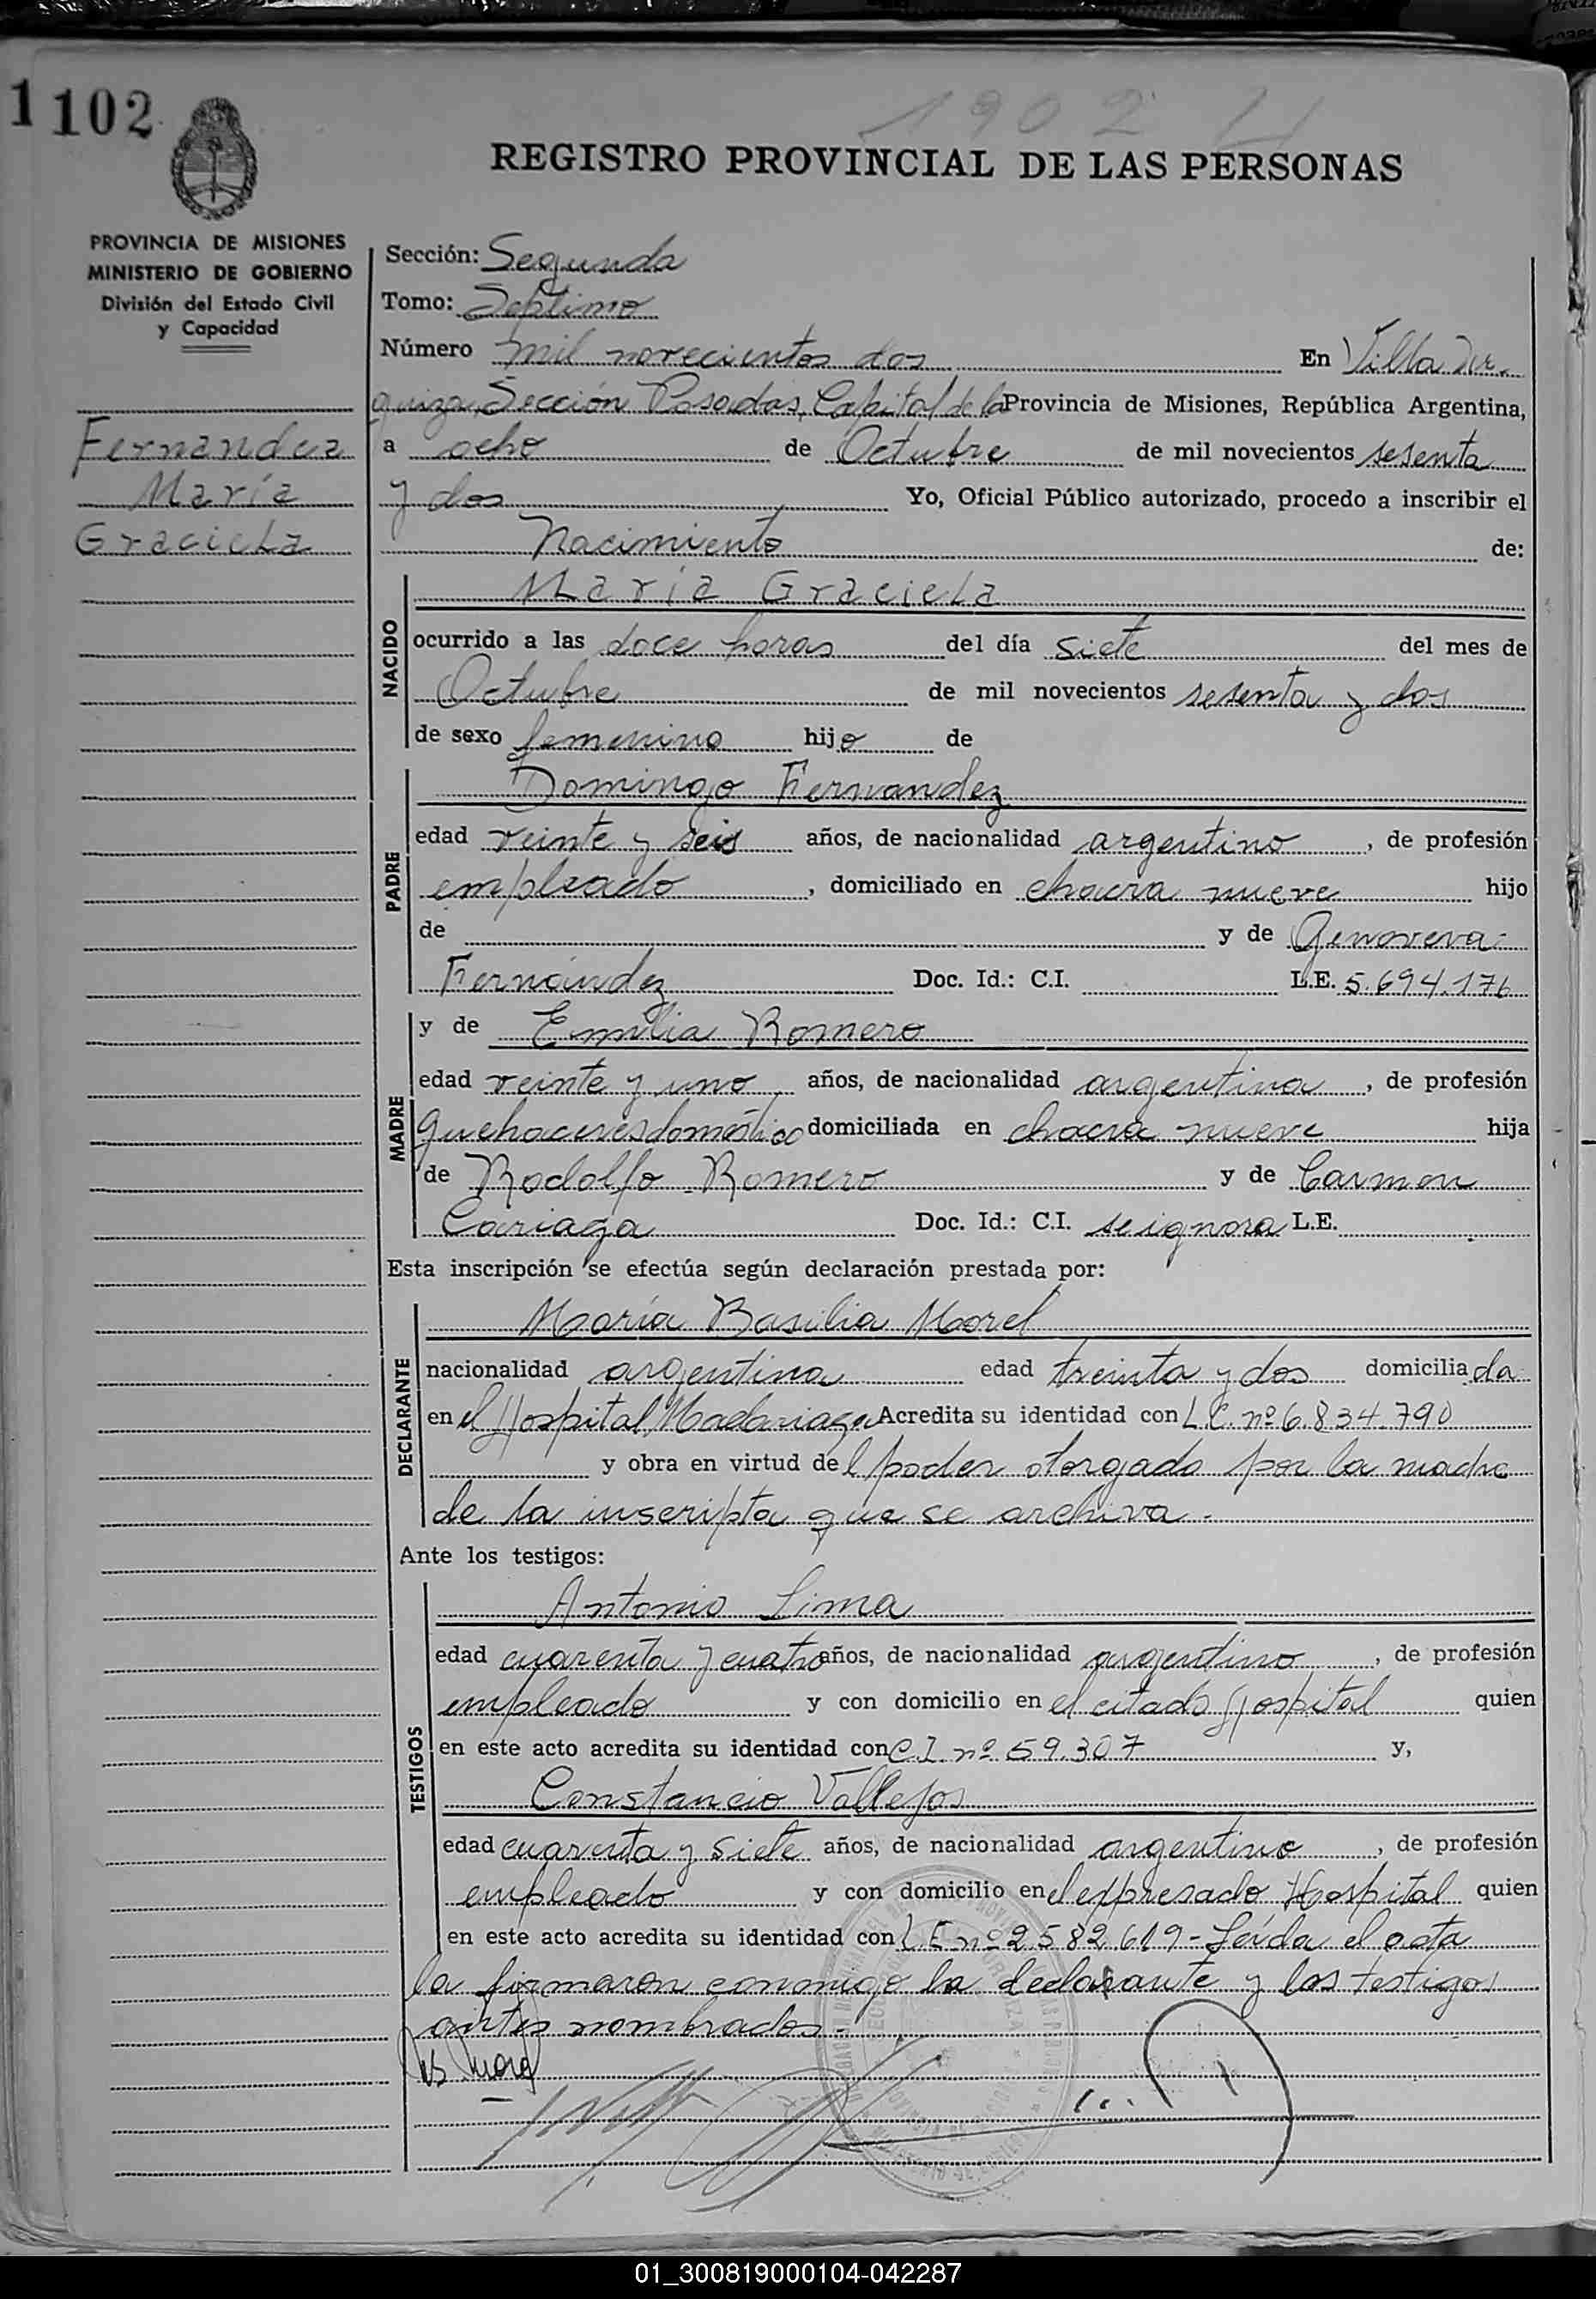 1102
1902
REGISTRO PROVINCIAL DE LAS PERSONAS
PROVINCIA DE MISIONES
MINISTERIO DE GOBIERNO
División del Estado Civil
y Capacidad
Fernandez
María
Graciela
Sección: Segunda
Tomo: Septimo
Número mil novecientos dos En Villa Ur-
quiza, Sección Posadas, Capital de la Provincia de Misiones, República Argentina,
a ocho de Octubre de mil novecientos sesenta
y dos Yo, Oficial Público autorizado, procedo a inscribir el
Nacimiento de:
NACIDO
María Graciela
ocurrido a las doce horas del día siete del mes de
Octubre de mil novecientos sesenta y dos
de sexo femenino hijo de
PADRE
Domingo Fernandez
edad veinte y seis años, de nacionalidad argentino, de profesión
empleado, domiciliado en chacra nueve hijo
de y de Genoveva
Fernández Doc. Id.: C.I. L.E. 5.694.176
MADRE
y de Emilia Romero
edad veinte y uno años, de nacionalidad argentina, de profesión
quehaceres doméstico domiciliada en chacra nueve hija
de Rodolfo Romero y de Carmen
Cariaga Doc. Id.: C.I. se ignora L.E.
Esta inscripción se efectúa según declaración prestada por:
DECLARANTE
María Basilia Morel
nacionalidad argentina edad treinta y dos domiciliada
en el Hospital Madariaga Acredita su identidad con L.C. nº 6.834.790
y obra en virtud del poder otorgado por la madre
de la inscripta que se archiva.
Ante los testigos:
TESTIGOS
Antonio Lima
edad cuarenta y cuatro años, de nacionalidad argentino, de profesión
empleado y con domicilio en el citado Hospital quien
en este acto acredita su identidad con C.I. nº 59.307 y,
Constancio Vallejos
edad cuarenta y siete años, de nacionalidad argentino, de profesión
empleado y con domicilio en el expresado Hospital quien
en este acto acredita su identidad con L.E nº 2.582.619 - Leída el acta
la firmaron conmigo la declarante y los testigos
antes nombrados.-
01_300819000104-042287